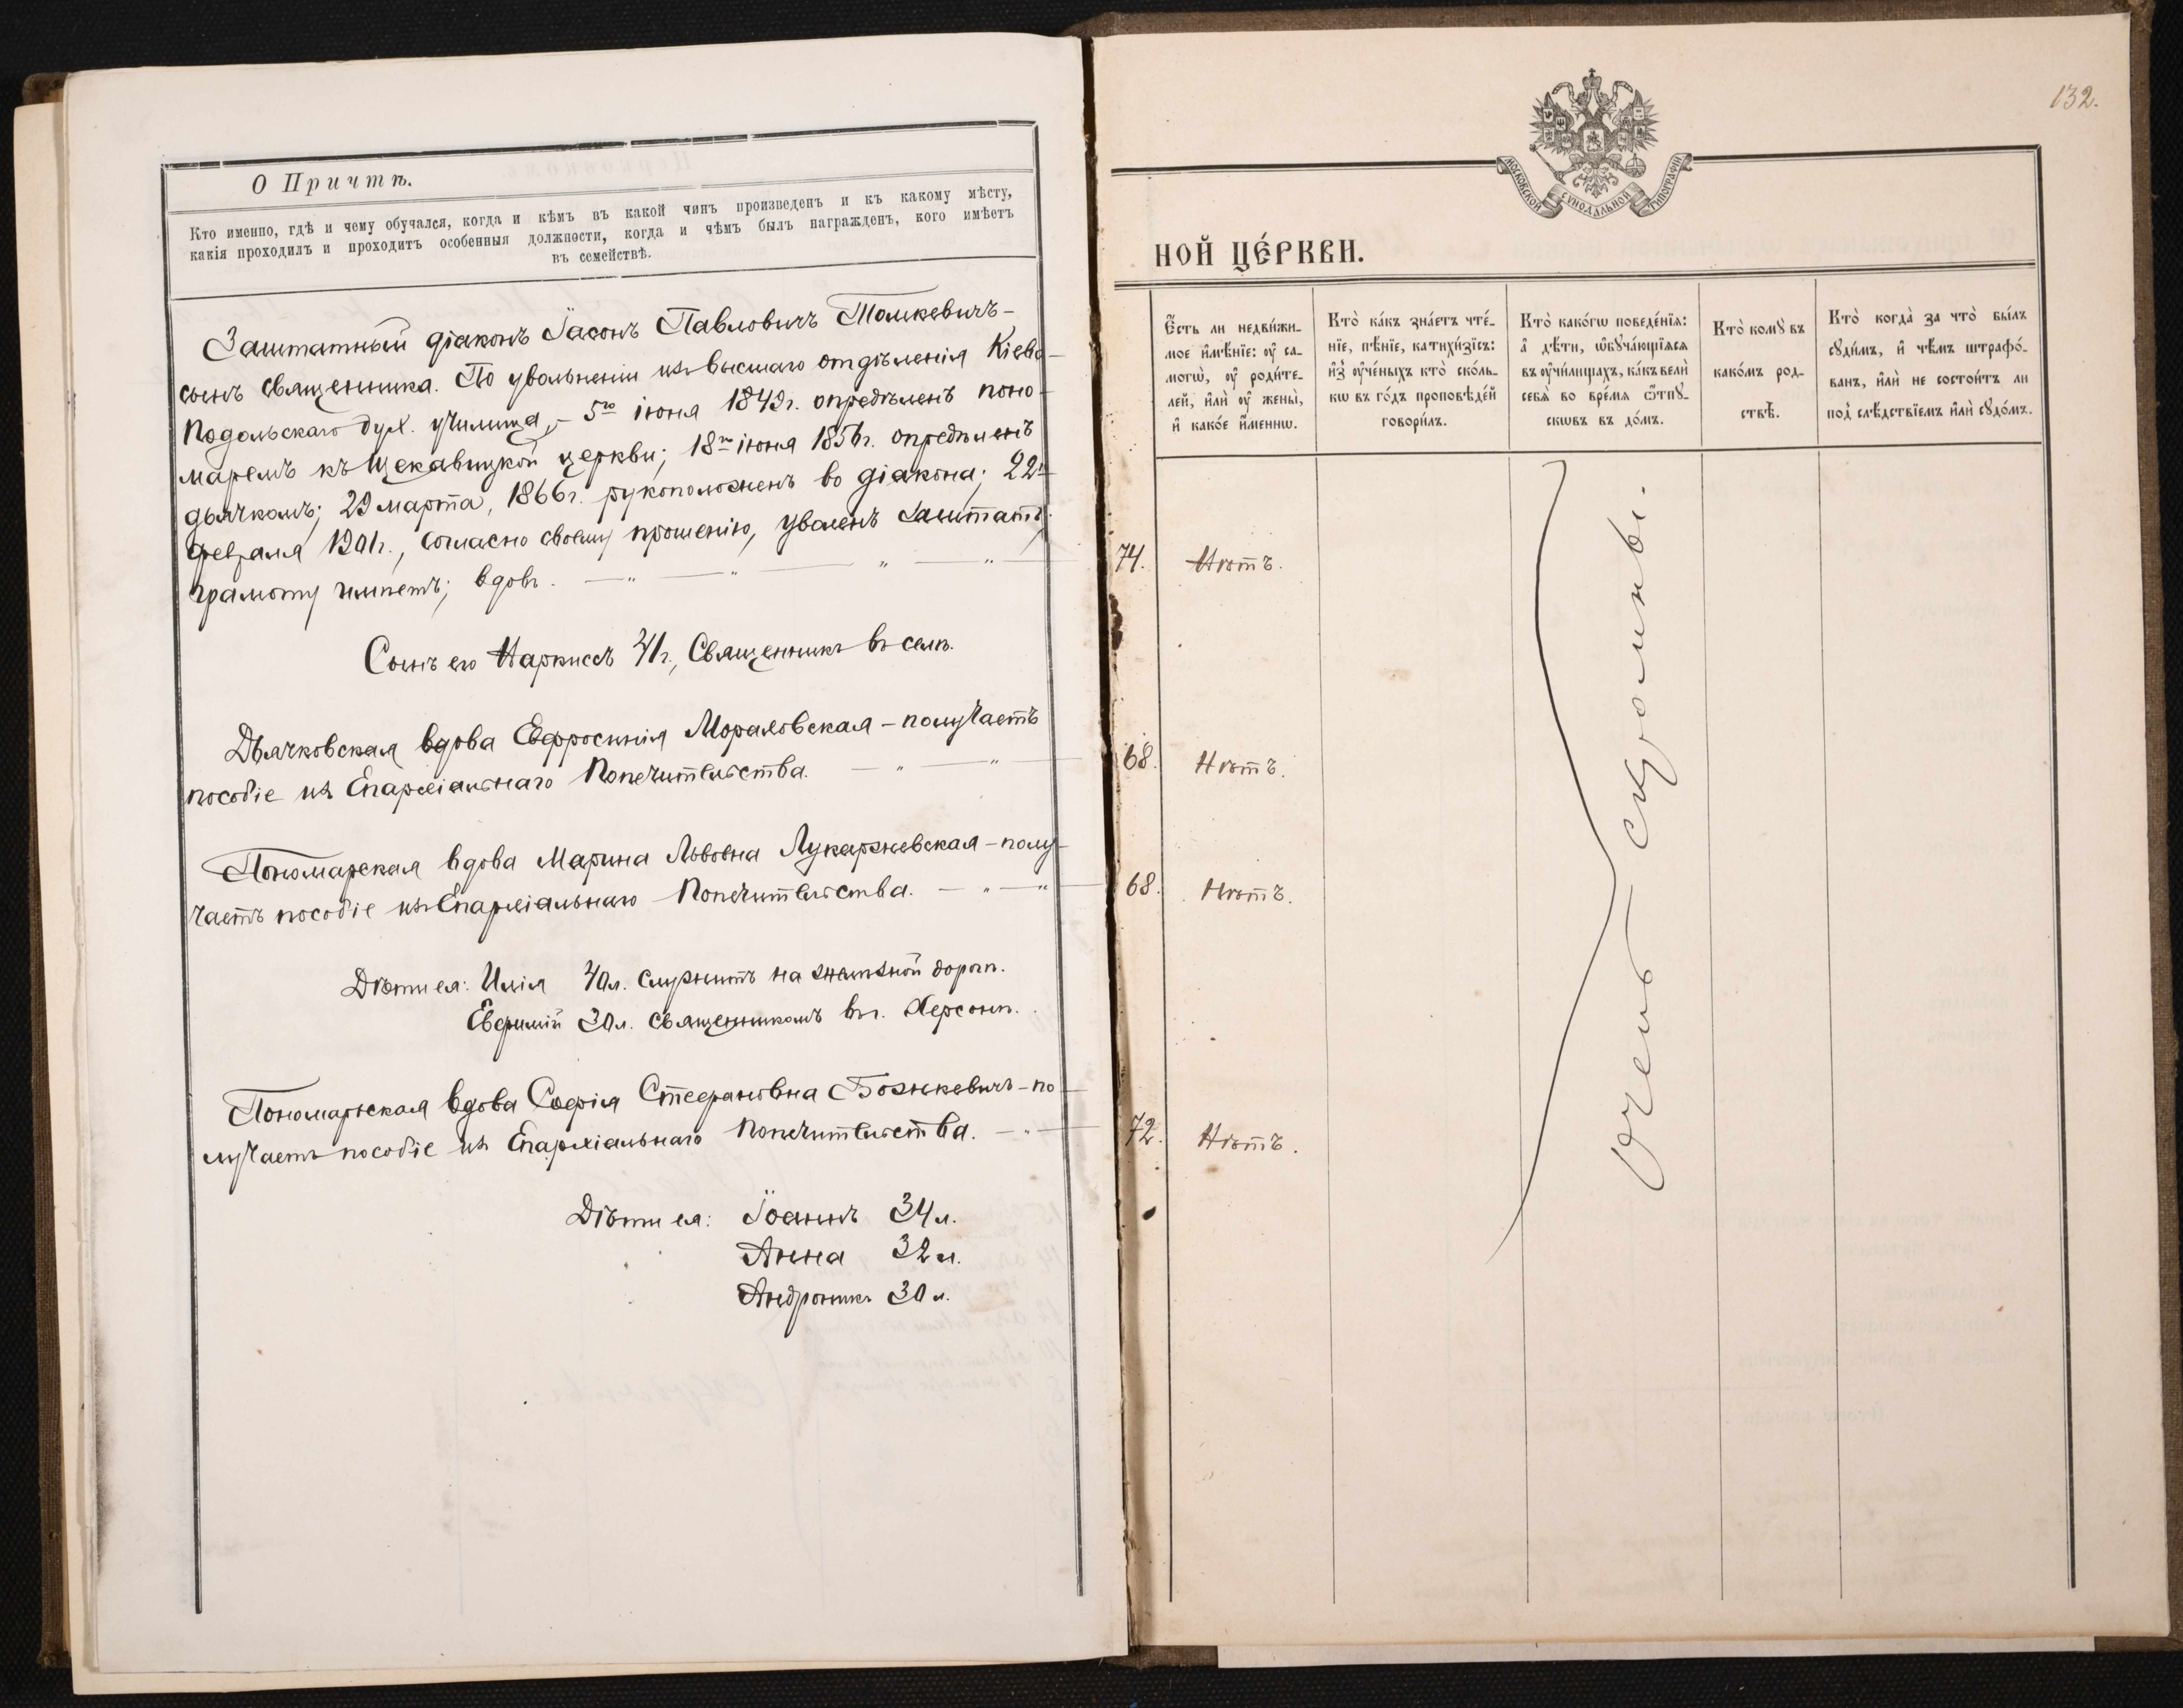 О Причтѣ.
Кто именно, гдѣ и чему обучался, когда и кѣмъ въ какой чинъ произведенъ и къ какому мѣсту,
какія проходилъ и проходитъ особенныя должности, когда и чѣмъ былъ награжденъ, кого имѣетъ
въ семействѣ.
Заштатный діаконъ Іасонъ Павловичъ Томкевичъ –
сынъ священника. По увольненіи изъ высшаго отдѣленія Кіево-
подольскаго дух. училища, – 5го іюня 1842г. опредѣленъ поно-
маремъ къ Щекавицкой церкви; 18го іюня 1856г. опредѣленъ
дьячкомъ; 29 марта, 1866г. рукоположенъ во діакона; 22го
февраля 1901г., согласно своему прошенію, уволенъ заштатъ;
грамоту имѣетъ; вдовъ. — „ — „ — „ — „ —
Сынъ его Наркиссъ 41г., Священникъ въ селѣ.
Дьячковская вдова Евфросинія Мораховская – получаетъ
пособіе изъ Епархіальнаго Попечительства. — „ — „ —
Пономарская вдова Марина Львовна Лукаржевская – полу-
чаетъ пособіе изъ Епархіальнаго Попечительства. — „ — „ —
Дѣти ея: Илія 40л. служитъ на желѣзной дорогѣ.
Евфимій 30л. священникомъ въ г. Херсонѣ.
Пономарская вдова Софія Стефановна Божкевичъ – по-
лучаетъ пособіе изъ Епархіальнаго Попечительства. — „ —
Дѣти ея: Іоаннъ 34л.
Анна 32л.
Андроникъ 30л.
132.
МОСКОВСКОЙ СѴНОДАЛЬНОЙ ТИПОГРАФІИ
НОЙ ЦЕ́РКВИ.
Е҆́сть ли недви́жи-
мое и҆мѣ́нїе: оу҆ са-
могѡ̀, оу҆ роди́те-
лей, и҆лѝ оу҆ жены̀,
и҆ како́е и҆́меннѡ.
Кто̀ ка́къ зна́етъ чте́-
нїе, пѣ́нїе, катихи́зїсъ:
и҆з̾ оу҆че́ныхъ кто̀ ско́ль-
кѡ въ го́дъ проповѣ́дей
говори́лъ.
Кто̀ како́гѡ поведе́нїѧ:
а҆ дѣ́ти, ѡ҆буча́ющїѧсѧ
въ оу҆чи́лищахъ, ка́къ велѝ
себѧ̀ во вре́мѧ ѿпꙋ-
скѡвъ въ до́мъ.
Кто̀ комꙋ̀ въ
како́мъ род-
ствѣ̀.
Кто̀ когда̀ за что̀ бы́лъ
сꙋди́мъ, и҆ чѣ́мъ штрафо́-
ванъ, и҆лѝ не состои́тъ ли
под̾ слѣ́дствїемъ и҆лѝ сꙋдо́мъ.
74. Нѣтъ.
68. Нѣтъ.
68. Нѣтъ.
72. Нѣтъ.
Очень скромны.